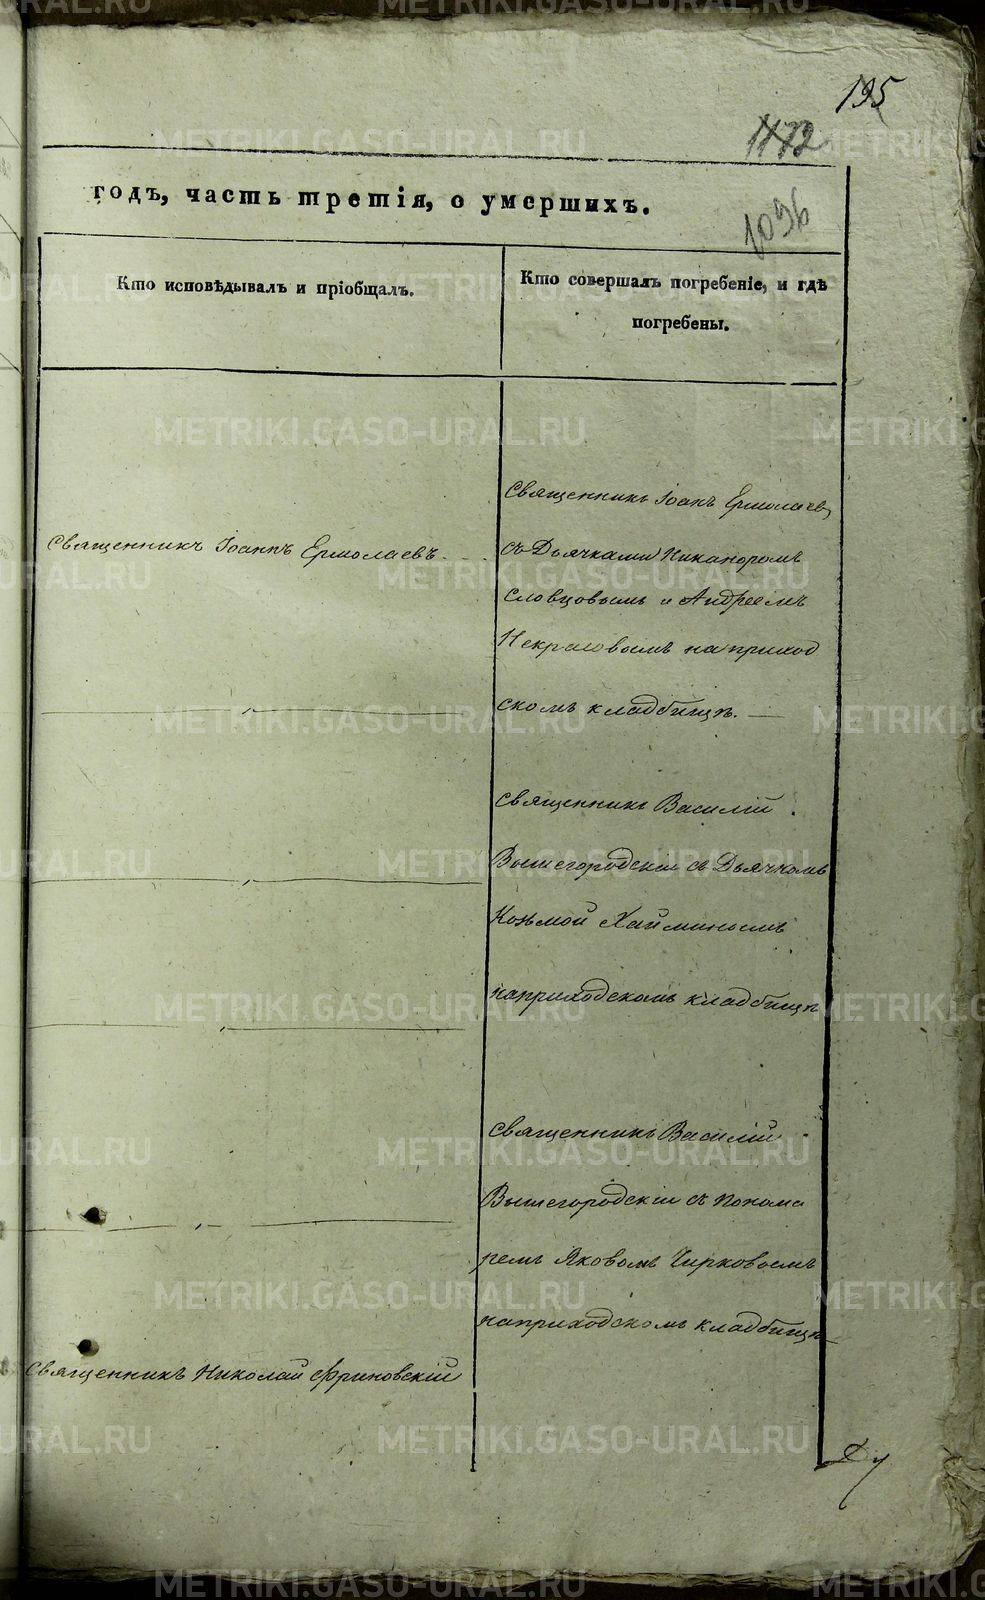 195
1172
1096
годъ, часть третія, о умершихъ.
Кто исповѣдывалъ и пріобщалъ.
Кто совершалъ погребеніе, и гдѣ
погребены.
Священникъ Іоаннъ Ермолаевъ
Священникъ Іоанъ Ермолаевъ
съ Дьячками Никаноромъ
Словцовымъ и Андреемъ
Некрасовымъ на приход
скомъ кладбищѣ.
Священникъ Василій
Вышегородскій съ Дьячкомъ
Козьмой Хайминымъ
наприходскомъ кладбищѣ
Священникъ Василій
Вышегородскій съ Понома
ремъ Яковомъ Чирковымъ
наприходскомъ кладбищѣ
Священникъ Николай Фриновскій
METRIKI.GASO-URAL.RU